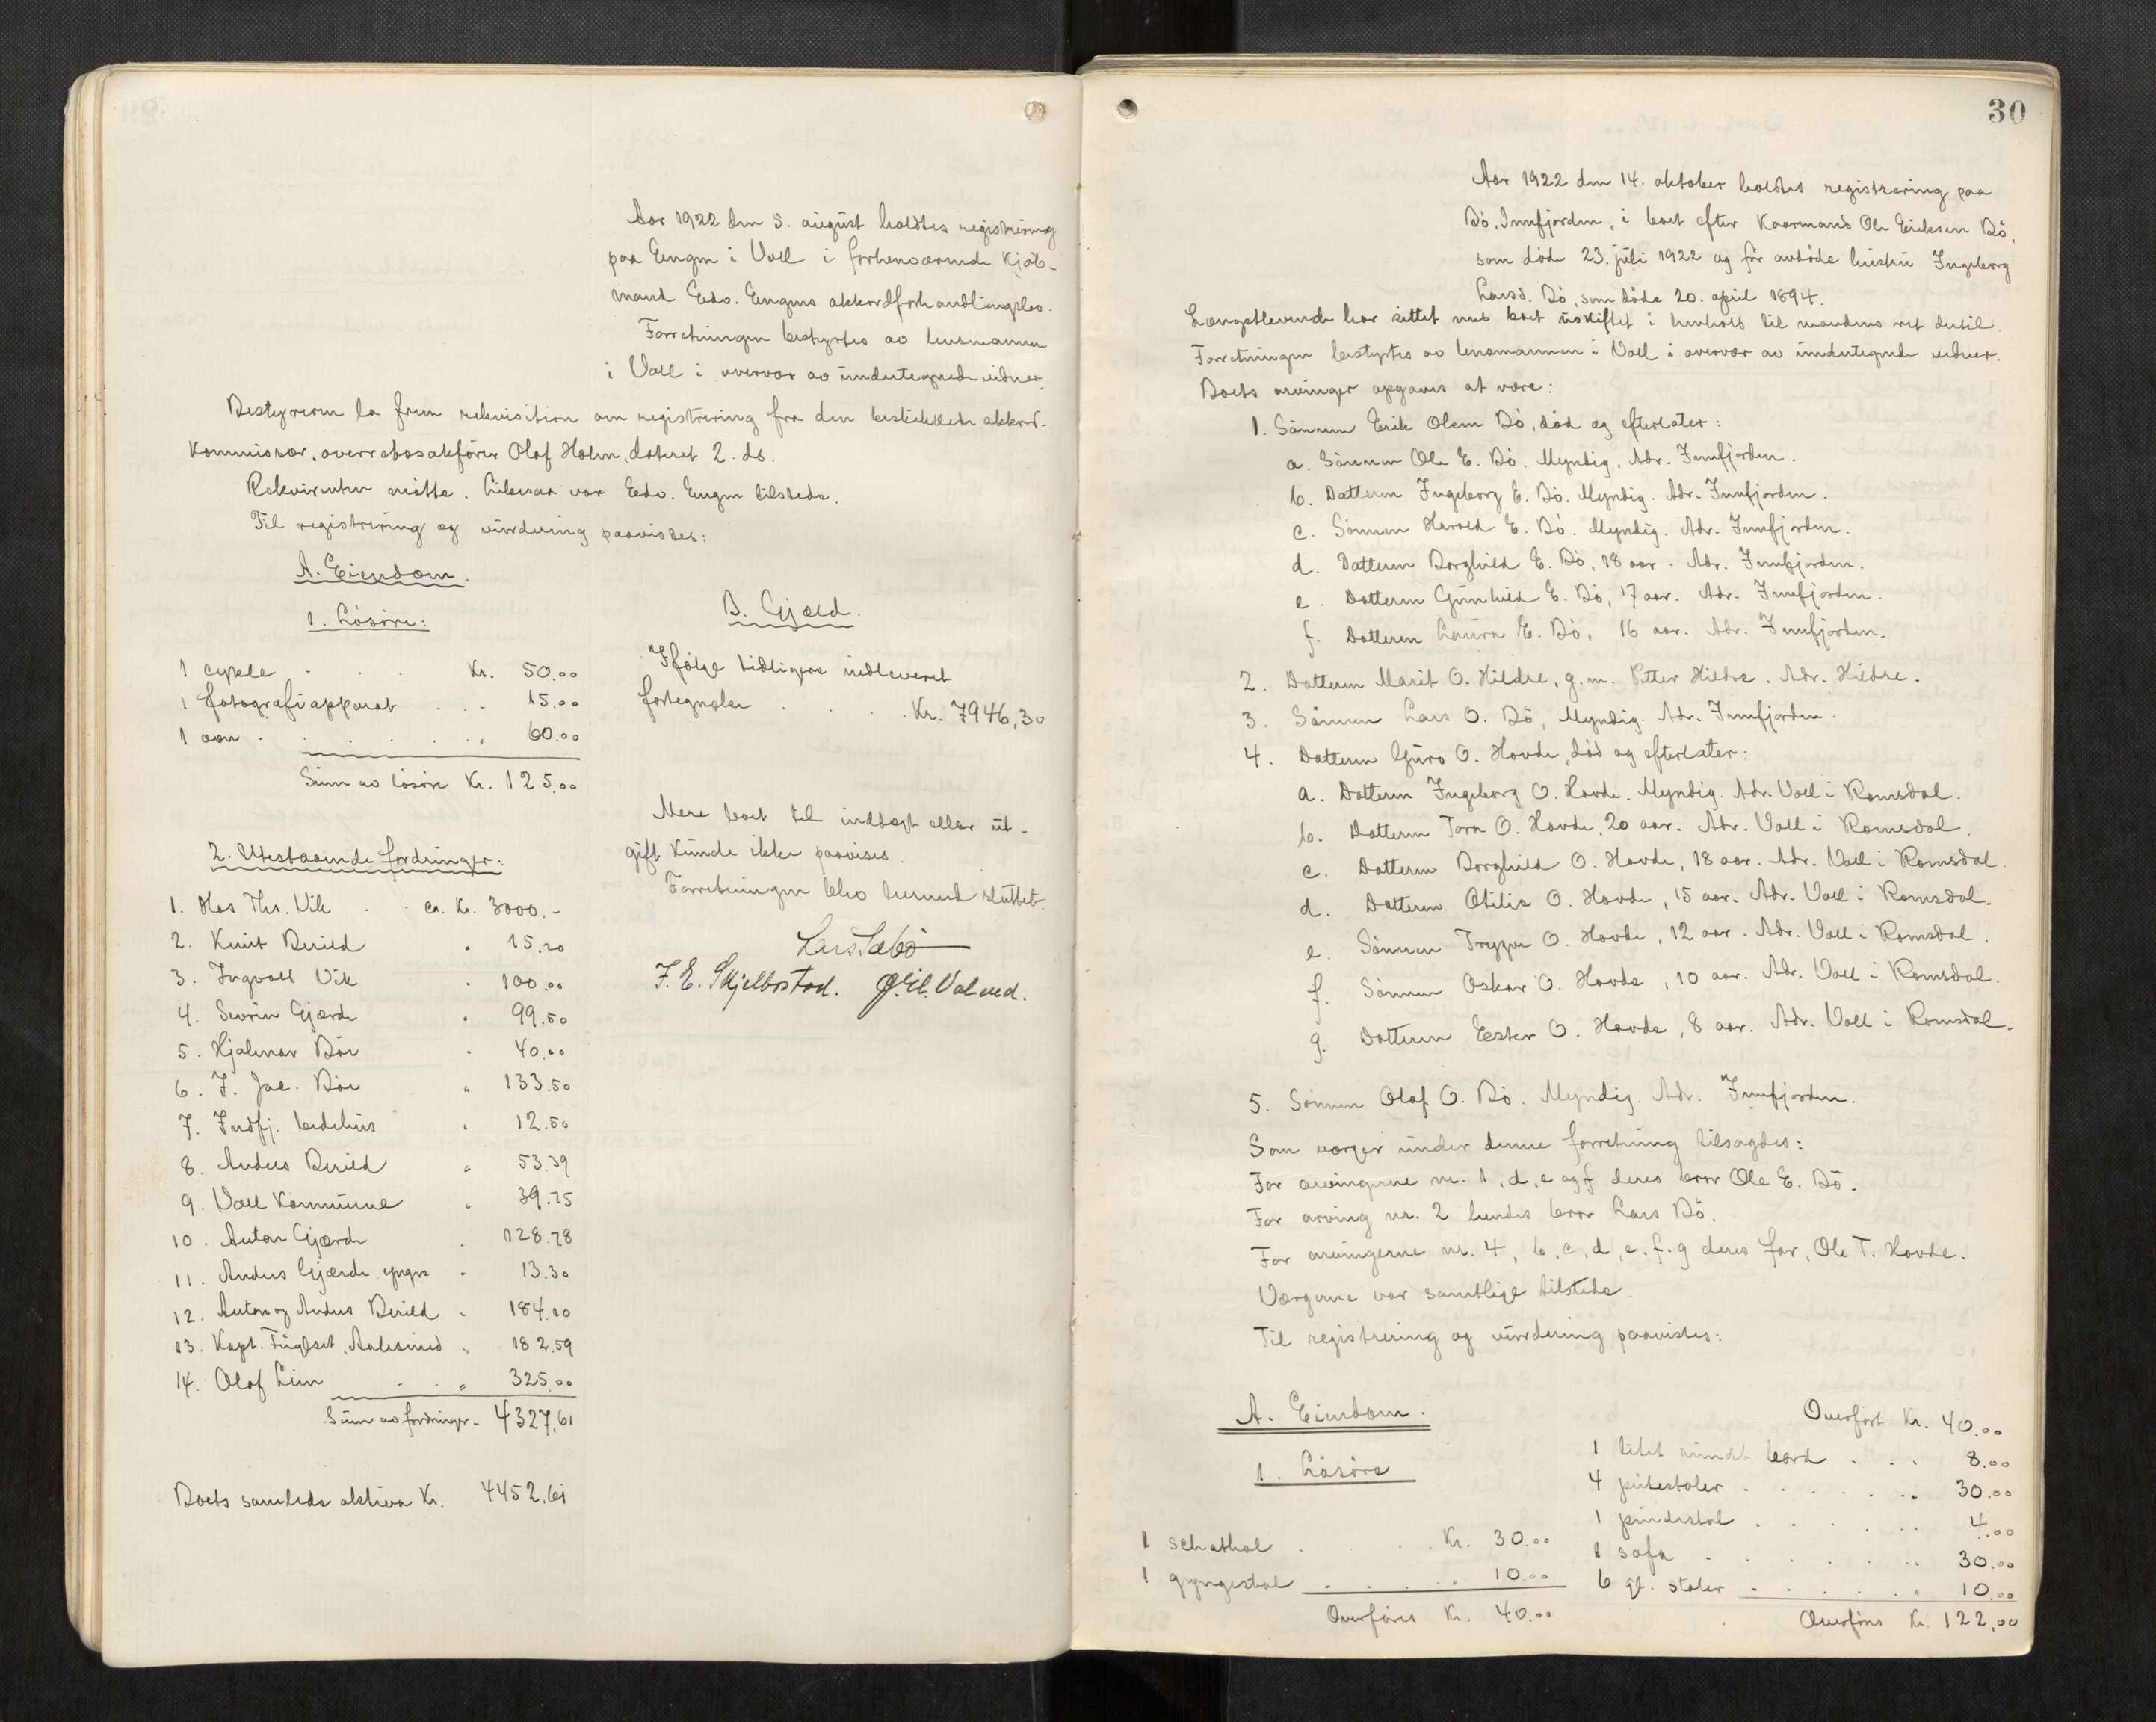 Aar 1922 den 5. august holdtes registrering
paa Engen i Voll i forhenværende kjøb-
mand Edv. Engens akkordforhandlingsbo.
Forretningen bestyrtes av lensmannen
i Voll i overvær av undertegnede vidner.
Bestyreren la frem rekvisition om registrering fra den beskikkede akkord-
kommissær, overretssakfører Olaf Holm, dateret 2. ds.
Rekvirenten møtte. Likesaa var Edv. Engen tilstede.
Til registrering og vurdering paavistes:
A. Eiendom.
1. Løsøre:
1 cykle . . . Kr. 50.00
1 fotografiapparat . . . 15.00
1 aon . . . . . . " 60.00
Sum av løsøre Kr. 125.00
2. Utestaaende fordringer:
1. Hos Ths. Vik . . ca. Kr. 3000.-
2. Knut Berild " 15.20
3. Ingvald Vik " 100.00
4. Sevrin Gjærde " 99.50
5. Hjalmar Bøe " 40.00
6. J. Jac. Bøe " 133.50
7. Indfj. bedehus " 12.50
8. Anders Berild " 53.39
9. Voll kommune " 39.75
10. Anton Gjærde " 128.78
11. Anders Gjærde yngre " 13.30
12. Anton og Anders Berild " 184.10
13. Kapt. Fuglset, Aalesund " 182.59
14. Olaf Lien . . " 325.00
Sum av fordringer " 4327.61
Boets samlede aktiva Kr. 4452.61
B. Gjæld.
Ifølge tidligere indleveret
fortegnelse . . . . Kr. 7946,30
Mere boet til indtægt eller ut-
gift kunde ikke paavises.
Forretningen blev hermed sluttet.
Lars Sæbø
J. E. Skjelbostad. O. El. Valved.
30
Aar 1922 den 14. oktober holdtes registrering paa
Bø, Innfjorden, i boet efter kaarmand Ole Eriksen Bø,
som døde 23. juli 1922 og før avdøde hustru Ingeborg
Larsd. Bø, som døde 20. april 1894.
Længstlevende har sittet med boet uskiftet i henhold til mandens ret dertil.
Forretningen bestyrtes av lensmannen i Voll i overvær av undertegnede vidner.
Boets arvinger opgaves at være:
1. Sønnen Erik Olsen Bø, død og efterlater:
a. Sønnen Ole E. Bø. Myndig. Adr. Innfjorden.
b. Datteren Ingeborg E. Bø. Myndig. Adr. Innfjorden.
c. Sønnen Harald E. Bø. Myndig. Adr. Innfjorden.
d. Datteren Borghild E. Bø, 18 aar. Adr. Innfjorden.
e. Datteren Gunhild E. Bø, 17 aar. Adr. Innfjorden.
f. Datteren Laura E. Bø, 16 aar. Adr. Innfjorden.
2. Datteren Marit O. Hildre, g.m. Petter Hildre. Adr. Hildre.
3. Sønnen Lars O. Bø, Myndig. Adr. Innfjorden.
4. Datteren Guro O. Hovde, død og efterlater:
a. Datteren Ingeborg O. Hovde. Myndig. Adr. Voll i Romsdal.
b. Datteren Tora O. Hovde, 20 aar. Adr. Voll i Romsdal.
c. Datteren Borghild O. Hovde, 18 aar. Adr. Voll i Romsdal.
d. Datteren Otilie O. Hovde, 15 aar. Adr. Voll i Romsdal.
e. Sønnen Trygve O. Hovde, 12 aar. Adr. Voll i Romsdal.
f. Sønnen Oskar O. Hovde, 10 aar. Adr. Voll i Romsdal.
g. Datteren Ester O. Hovde, 8 aar. Adr. Voll i Romsdal.
5. Sønnen Olaf O. Bø. Myndig. Adr. Innfjorden.
Som verger under denne forretning tilsagdes:
For arvingerne nr. 1, d, e og f deres bror Ole E. Bø.
For arving nr. 2 hendes bror Lars Bø.
For arvingerne nr. 4, b, c, d, e, f, g deres far, Ole T. Hovde.
Vergerne var samtlige tilstede.
Til registrering og vurdering paavistes:
A. Eiendom.
1. Løsøre
1 schathol . . . . Kr. 30.00
1 gyngestol . . . . " 10.00
Overføres Kr. 40.00
Overført Kr. 40.00
1 litet rundt bord . . . 8.00
4 putestoler . . . . . " 30.00
1 pindestol . . . . . " 4.00
1 sofa . . . . . . " 30.00
6 gl. stoler . . . . . " 10.00
Overføres Kr. 122.00